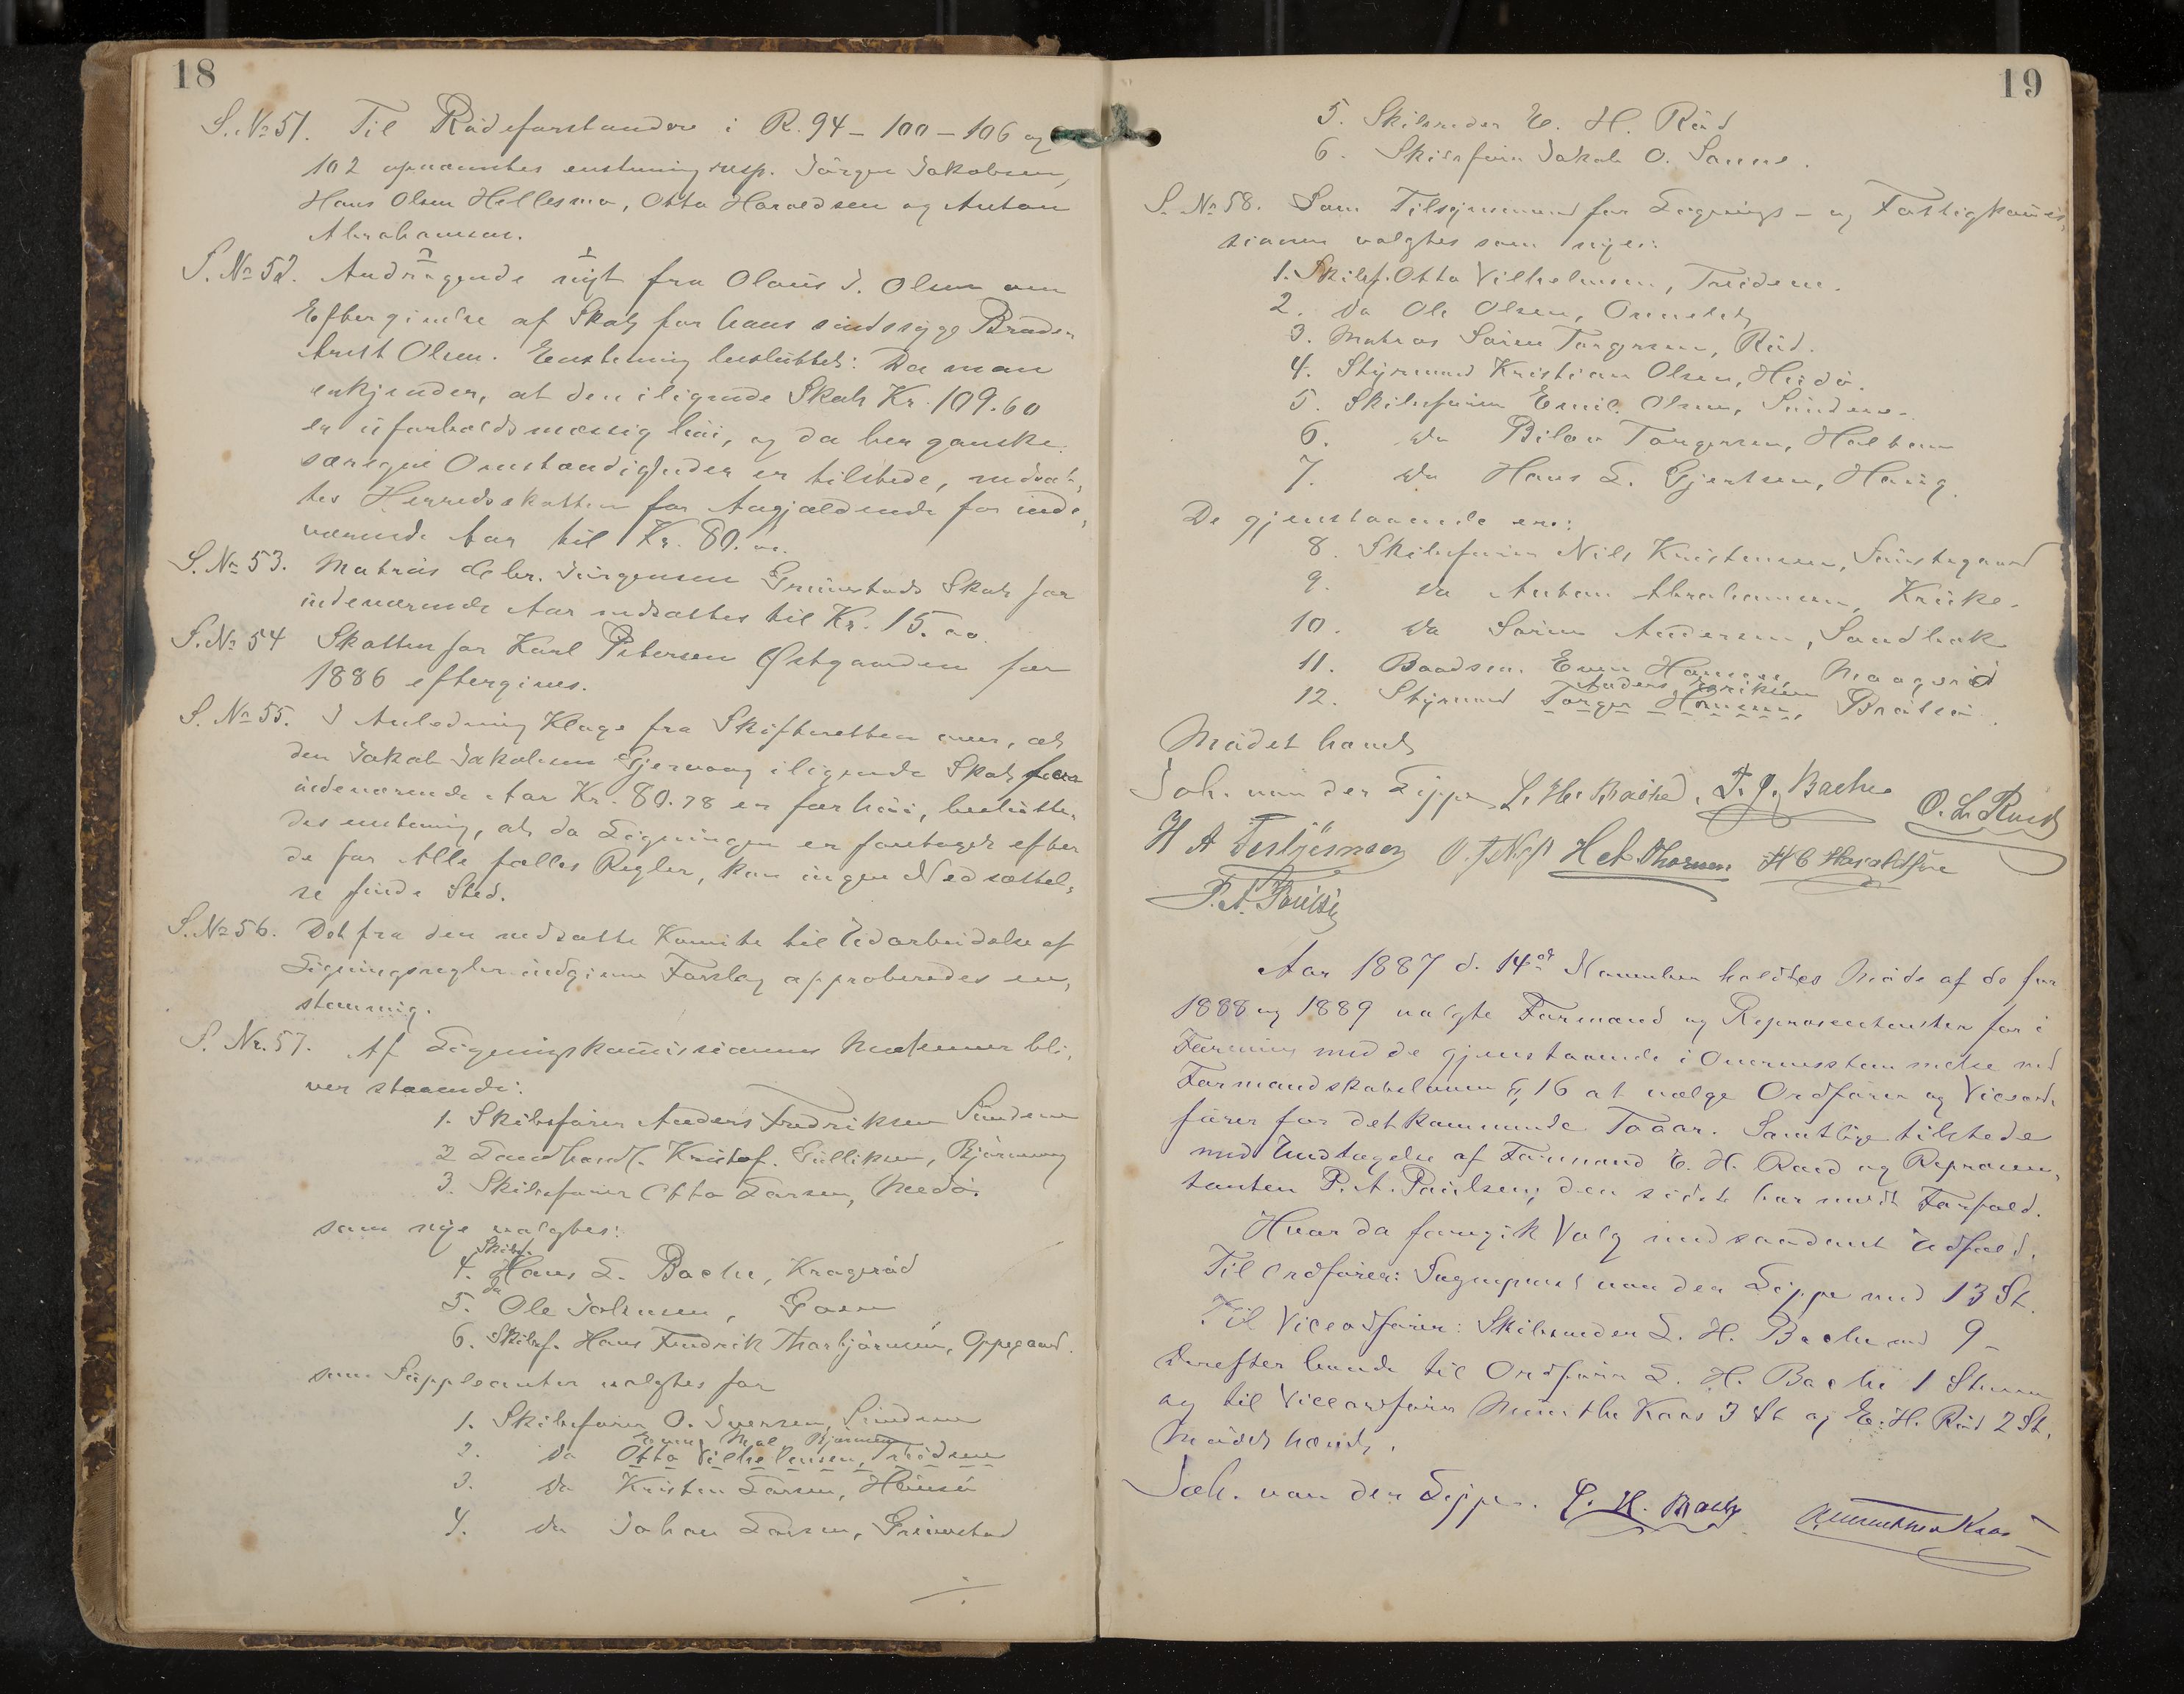 18
S. No 51. Til Rodeforstandere i R. 94 - 100 - 106 og
102 opnævntes enstemmig resp. Jörgen Jakobsen,
Hans Olsen Hellesmo, Otto Haraldsen og Anton
Abrahamsen.
S. No 52. Andragende fra Olaus J. Olsen om
Eftergivelse af Skat for hans sindssyge Broder
Arnt Olsen. Enstemmig besluttet: Da man
erkjender, at den iligende Skat Kr. 109.60
er uforholdsmæssig höi, og da her ganske
særegne Omstændigheder er tilstede, nedsæt-
tes Herredsskatten for Angjældende for inde-
værende Aar til Kr. 80.00.
S. No 53. Matros Chr. Jörgensen Grimstads Skat for
indeværende Aar nedsættes til Kr. 15.00.
S. No 54 Skatten for Karl Petersen Østgaarden for
1886 eftergives.
S. No 55. I Anledning Klage fra Skifteretten over, at
den Jakob Jakobsen Gjervaag iligende Skat for
indeværende Aar Kr. 80.78 er for höi, beslutte-
des enstemmig, at da Ligningen er foretaget efter
de for Alle fælles Regler, kan ingen Nedsættel-
se finde Sted.
S. No 56. Det fra den nedsatte Komite til Udarbeidelse af
Ligningsregler indgivne Forslag approberedes en-
stemmig.
S. Nr. 57. Af Ligningskommissionens Medlemmer bli-
ver staaende:
1. Skibsförer Anders Fredriksen Sundene
2 Landhandl. Kristof. Gulliksen, Björnevaag
3. Skibsförer Otto Larsen, Medö.
som nye valgtes:
Skibsf.
4. Hans L. Bache, Krageröd
do
5. Ole Johnsen, Gaasen
6. Skibsf. Hans Fredrik Thorbjörnsen, Oppegaard.
som Suppleanter valgtes for
1. Skibsförer O. Iversen, Sundene
2. do Otto Vilhelmsen,
3. do Kristen Larsen,
4. do Johan Larsen, Grimstad
19
5. Skibsreder E. H. Röd
6. Skibsförer Jakob O. Sanne.
S. No 58. Som Tilsynsmænd for Lægnings- og Fattigkommis-
sionen valgtes som nye:
1. Skibsf. Otto Vilhelmsen,
2. do Ole Olsen, Ormelet
3. Matros Sören Torgersen, Röd.
4. Styrmand Kristian Olsen, Hvidö.
5. Skibsförer Emil Olsen, Sundene.
6. do Torgersen, Holtene
7. do Hans L. Gjertsen, Haug.
De gjenstaaende ere:
8. Skibsförer Nils Kristensen,
9. do Anton Abrahamsen, Kruke.
10. do Sören Andersen, Sandbæk
11. Baadsm. Even Hansen, Maageröd
Anders Eriksen
12. Styrmand Torger Hansen, Bratsö.
Mödet hævet
Joh. van der Lippe L. H. Bache. T. J. Bache O. L. Ruud
H A Torbjörnsen H A Thorsen H C Haraldsen
P. A. Paulsen
Aar 1887 d. 14de November holdtes Möde af de for
1888 og 1889 valgte Formænd og Repræsentanter for i
Forening med de gjenstaaende i Overensstemmelse med
Formandskabsloven § 16 at vælge Ordförer og Viceord-
förer for det kommende Toaar. Samtlige tilstede
med Undtagelse af Formand E. H. Röed og Repræsen-
tanten P. A. Paulsen, den sidste har meldt Forfald.
Hvor da foregik Valg med saadant Udfald.
Til Ordförer: Sogneprest van der Lippe med 13 St.
Til Viceordförer: Skibsreder L. H. Bache med 9 -
Derefter havde til Ordförer L. H. Bache 1 Stemme
og til Viceordförer Munthe Kaas 3 St og E. H. Röd 2 St.
Mödet hævet.
Joh. van der Lippe. L. H. Bache Munthe Kaas